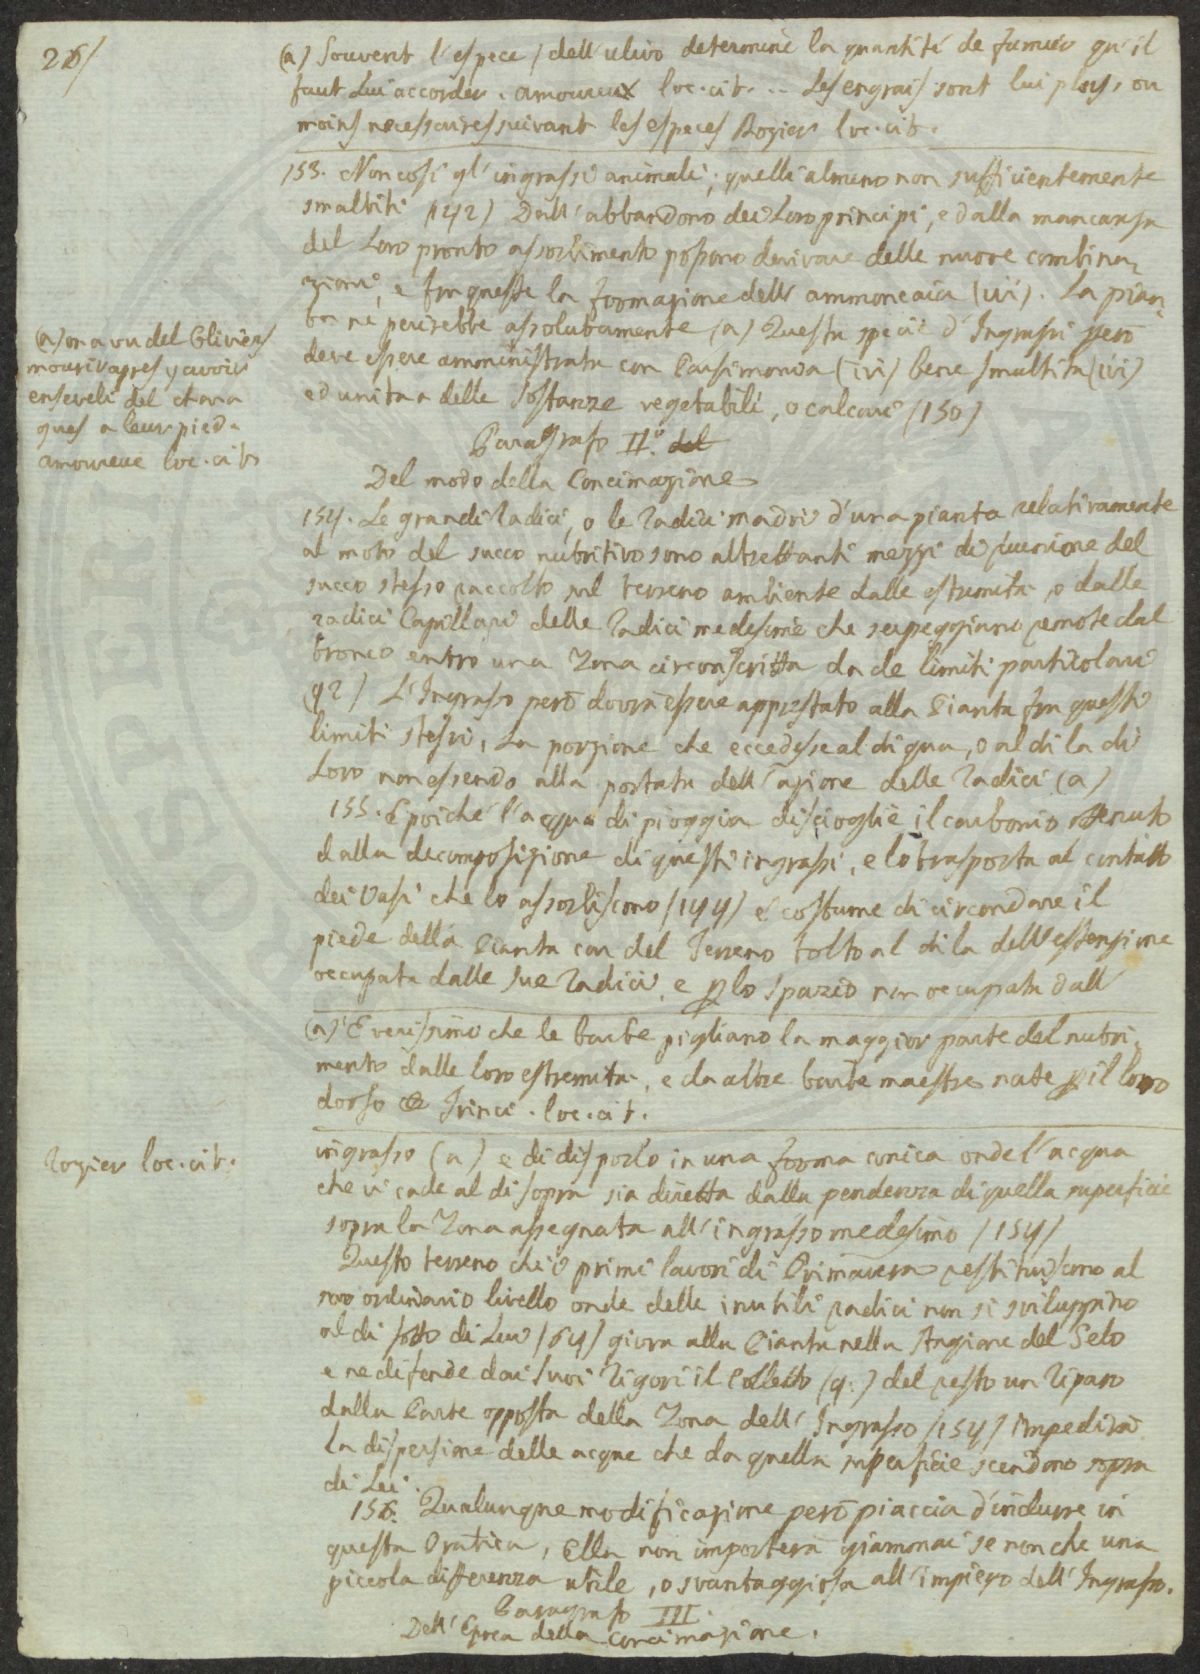 26/
(a) Souvent l'espece / dell'ulivo determine la quantité de fumier qu'il
faut Lui accorder. amoureux loc. cit. .. Les engrais sont lui plus, ou
moins necessaires suivant les especes Rozier loc. cit.
153. Non così gl'ingrassi animali; quelli almeno non sufficientemente
smaltiti (142) Dall'abbandono dei Loro principi, e dalla mancanza
del Loro pronto assorbimento possono derivare delle nuove combina-
zioni, e fra queste la formazione dell'ammoneaca (ivi). La pian-
ta ne perirebbe assolutamente (a) Questa specie d'Ingrassi però
deve essere amministrata con Parsimonia (ivi) bene smaltita (ivi)
ed unita a delle Sostanze vegetabili, o calcari (150)
(a) on a vu del Oliviers
mourir apres y avoir
enseveli del chara
ques a leur pied.
amoureux loc. cit.
Paragrafo II.° del
Del modo della Concimazione
154. Le grandi radici, o le radici madri d'una pianta relativamente
al moto del succo nutritivo sono altrettanti mezzi di riunione del
succo stesso raccolto nel terreno ambiente dalle estremità, o dalle
radici Capillari delle radici medesime che serpeggiano remote dal
tronco entro una Zona circonscritta da de limiti particolari
(92) L'Ingrasso però dovrà essere apprestato alla Pianta fra questi
limiti stessi, La porzione che eccedesse al di qua, o al di là di
Loro non essendo alla portata dell'azione delle radici (a)
155. E poiché l'acqua di pioggia discioglie il carbonio ottenuto
dalla decomposizione di questi ingrassi, e lo trasporta al contatto
dei Vasi che lo assorbiscono (144) è costume di circondare il
piede della Pianta con del Terreno tolto al di là dell'estensione
occupata dalle sue radici, e p lo spazio non occupata dall'
(a) È verissimo che le barbe pigliano la maggior parte del nutri-
mento dalle loro estremità, e da altre barbe maestre nate p il loro
dorso Trinci. loc. cit.
Rozier loc. cit.
ingrasso (a) e di disporlo in una forma conica onde l'acqua
che vi cade al di sopra sia diretta dalla pendenza di quella superficie
sopra la Zona assegnata all'ingrasso medesimo (154)
Questo terreno che i primi lavori di Primavera restituiscono al
suo ordinario livello onde delle inutili radici non si sviluppino
al di sotto di Lui (64) giova alla Pianta nella Stagione del Gelo
e ne difende dai suoi rigori il Colletto (9:) del resto un riparo
dalla Parte opposta della Zona dell'Ingrasso (154) impedirà
la dispersione delle acque che da quella superficie scendono sopra
di Lei.
156. Qualunque modificazione però piaccia d'indurre in
questa Pratica, Ella non importerà giammai se non che una
piccola differenza utile, o svantaggiosa all'impiego dell'Ingrasso.
Paragrafo III.
Dell'Epoca della Concimazione.